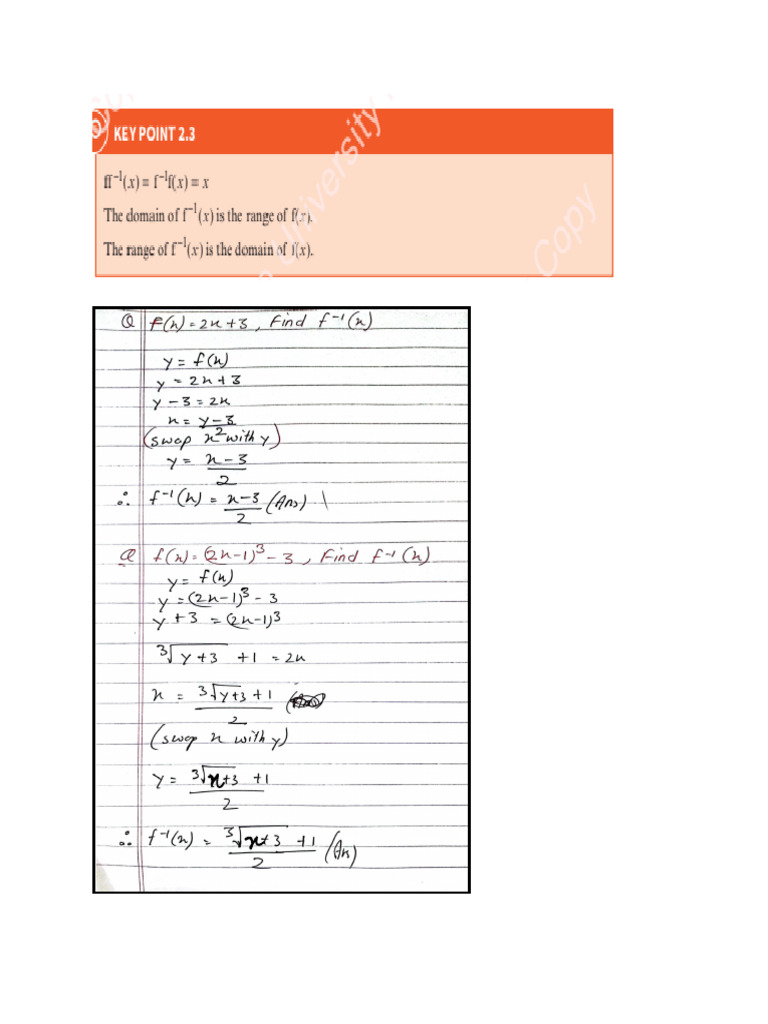 KEY POINT 2.3
ff⁻¹(x) = f⁻¹f(x) = x
The domain of f⁻¹(x) is the range of f(x).
The range of f⁻¹(x) is the domain of f(x).
University
Copy
Q f(x) = 2x + 3, Find f⁻¹(x)
y = f(x)
y = 2x + 3
y - 3 = 2x
x = y - 3
2
(swap x with y)
y = x - 3
2
∴ f⁻¹(x) = x - 3 (Ans)
2
Q f(x) = (2x - 1)³ - 3, Find f⁻¹(x)
y = f(x)
y = (2x - 1)³ - 3
y + 3 = (2x - 1)³
³√y + 3 + 1 = 2x
x = ³√y + 3 + 1
2
(swap x with y)
y = ³√x + 3 + 1
2
∴ f⁻¹(x) = ³√x + 3 + 1 (An)
2